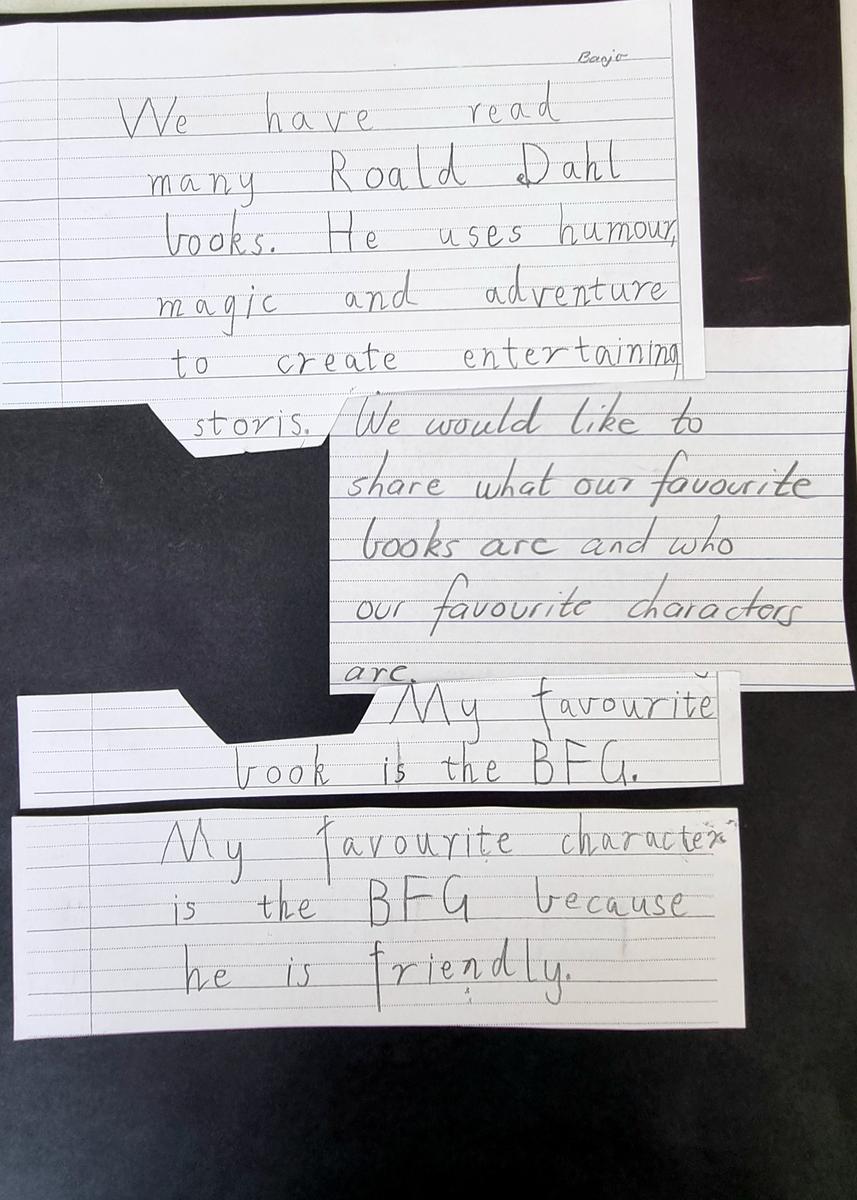 Banjo
We have read
many Roald Dahl
books. He uses humour,
magic and adventure
to create entertaining
storis. We would like to
share what our favourite
books are and who
our favourite characters
are.
My favourite
book is the BFG.
My favourite character
is the BFG because
he is friendly.